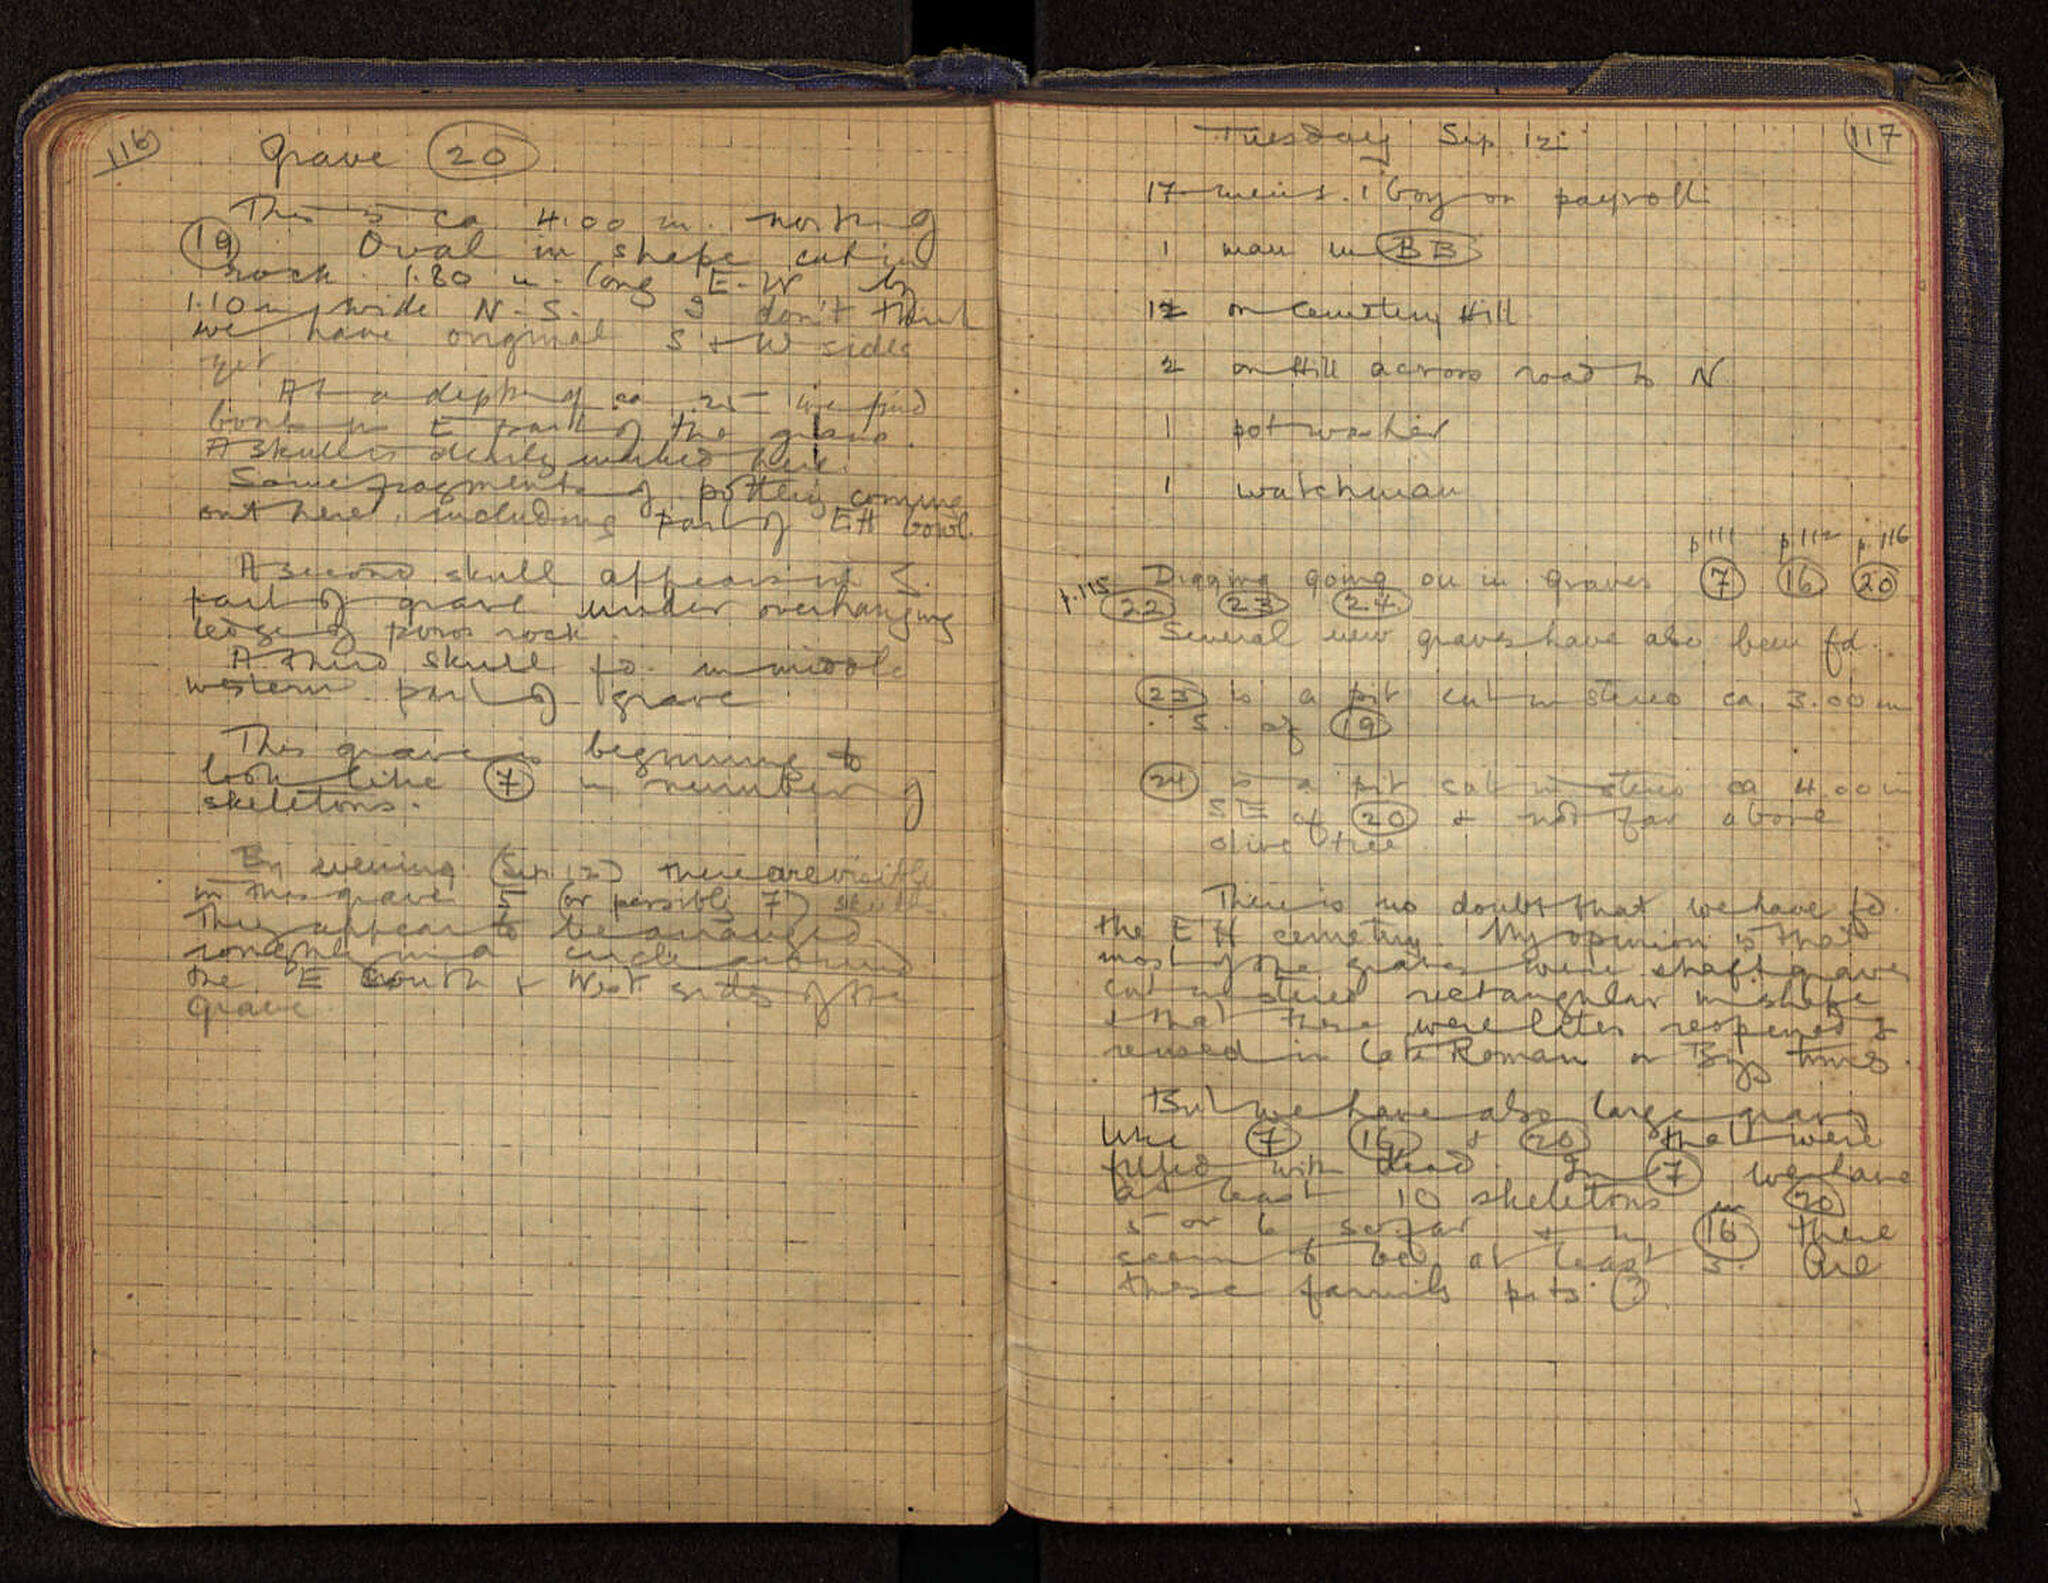 116
Grave 20
This is ca 4.00 m. north of
19 Oval in shape cut in
rock 1.80 m. long E-W by
1.10 m wide N.-S. I don't think
we have original S + W sides
yet
At a depth of ca .25 we find
bones in E part of the grave.
A skull is clearly marked here.
Some fragments of pottery coming
out here, including part of EH bowl.
A second skull appears in S.
part of grave under overhanging
ledge of poros rock.
A third skull fd. in middle
western part of grave
This grave is beginning to
look like 7 in number of
skeletons.
By evening (Sep. 12) there are visible
in this grave 5 (or possibly 7) skulls
They appear to be arranged
roughly in a circle around
the E South + West sides of the
grave
117
Tuesday Sep 12
17 men. 1 boy on payroll
1 man in BB
12 on Cemetery Hill
2 on Hill across road to N
1 pot washer
1 watchman
p 111 p 112 p. 116
Digging going on in graves 7 16 20
p. 115 22 23 24
Several new graves have also been fd.
23 is a pit cut in stereo ca 3.00 m
S. of 19
24 is a pit cut in stereo ca 4.00 m
SE of 20 + not far above
olive tree
There is no doubt that we have fd.
the EH cemetery. My opinion is that
most of the graves were shaft graves
cut in stereo rectangular in shape
+ that these were later reopened +
reused in late Roman or Byz times.
But we have also large graves
like 7 16 + 20 that were
filled with dead. In 7 we have
at least 10 skeletons in 20
5 or 6 so far + in 16 there
seem to be at least 5. Are
these family pits (?)